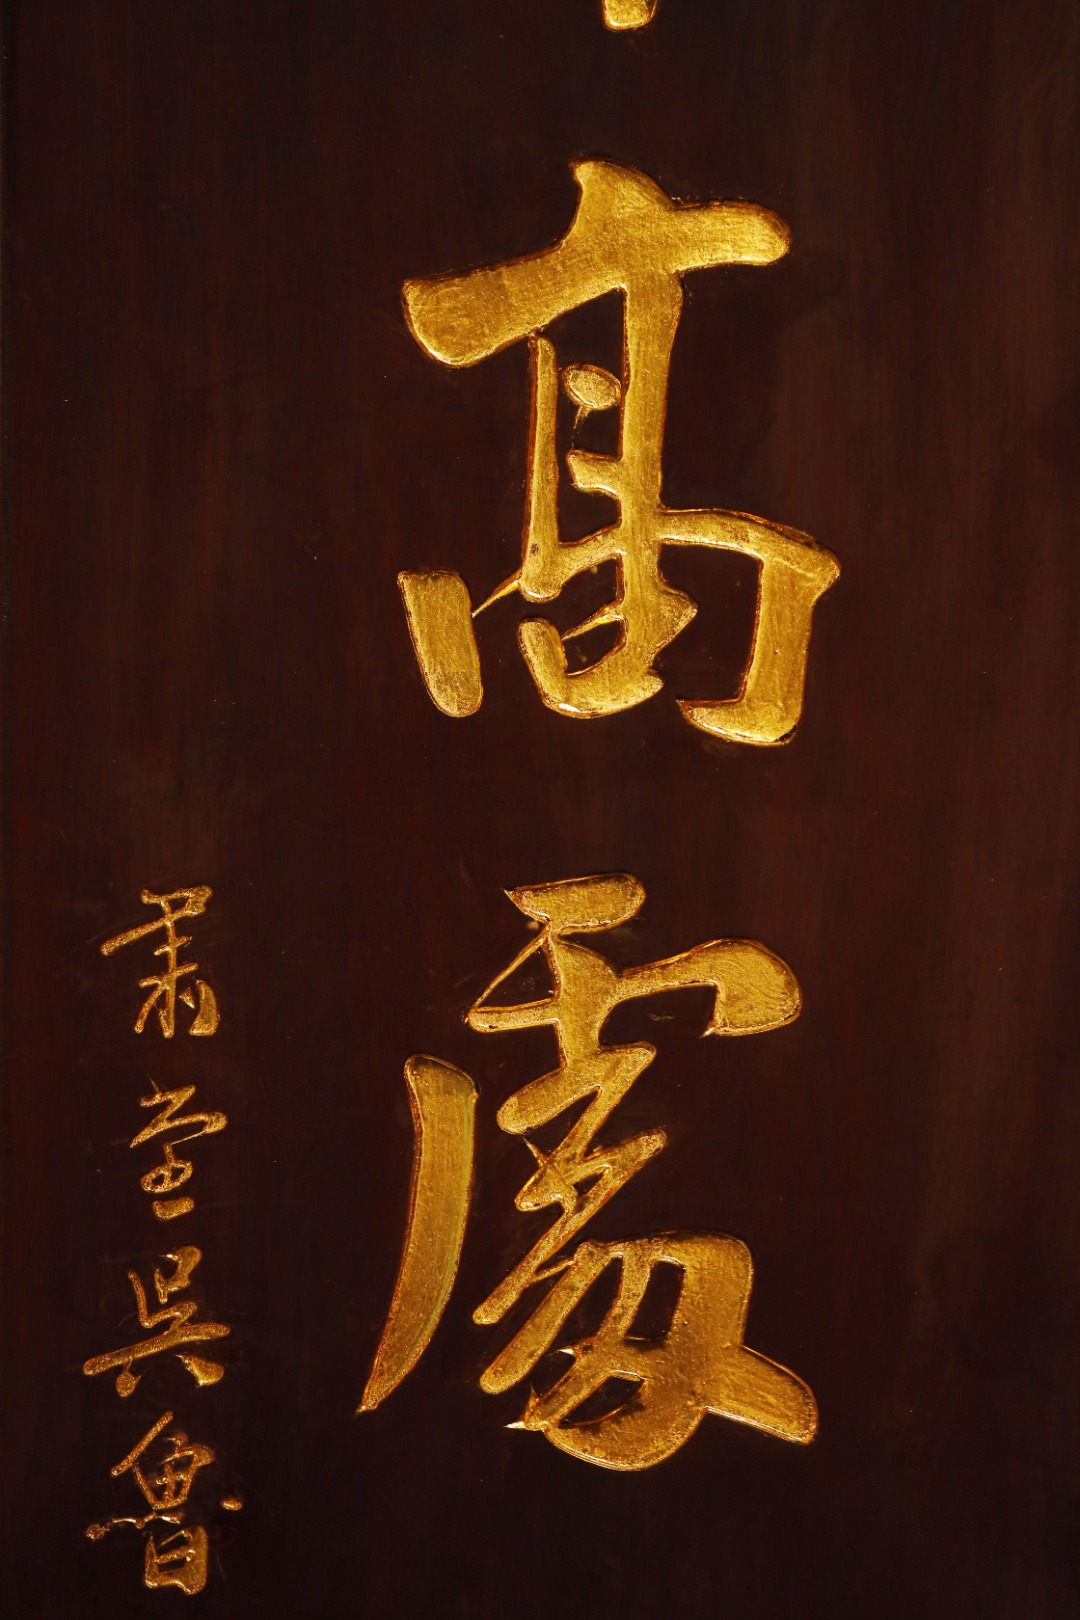 高處
肅堂吳魯